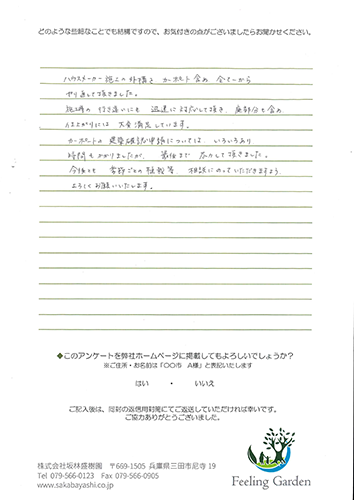 どのような些細なことでも結構ですので、お気付きの点がございましたらお聞かせください。
ハウスメーカー施工の外構を カーポート含め 全て一から
やり直して頂きました。
施工時の 行き違いにも 迅速に対応して頂き、 庭部分も含め
仕上がりには 大変満足しています。
カーポートの 建築確認申請については いろいろあり
時間もかかりましたが、 最後まで 尽力して頂きました。
今後とも 季節ごとの 相談にのっていただきますよう、
よろしくお願いいたします。
◆このアンケートを弊社ホームページに掲載してもよろしいでしょうか?
※ご住所・お名前は「〇〇市 A様」と表記いたします
はい ・ いいえ
ご記入後は、同封の返信用封筒にてご返送していただければ幸いです。
ご協力ありがとうございました。
株式会社坂林盛樹園 〒669-1505 兵庫県三田市尼寺 19
Tel 079-566-0123 Fax 079-566-0905
www.sakabayashi.co.jp
Feeling Garden